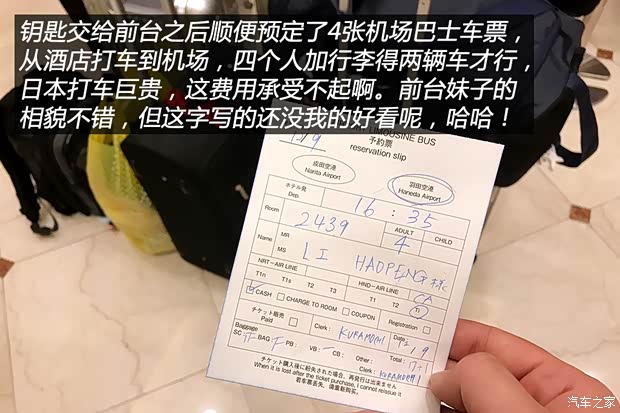 钥匙交给前台之后顺便预定了4张机场巴士车票，
从酒店打车到机场，四个人加行李得两辆车才行，
日本打车巨贵，这费用承受不起啊。前台妹子的
相貌不错，但这字写的还没我的好看呢，哈哈！
LIMOUSINE BUS
予約票
reservation slip
成田空港
Narita Airport
羽田空港
Haneda Airport
ホテル発
Dep.
16:35
Room
2439
ADULT
CHILD
4
Name
MR
MS
LI HAOPENG 様
NRT-AIR LINE
HND-AIR LINE
CA
T1n
T1s
T2
T3
T1
T2
TI
CASH
CHARGE TO ROOM
COUPON
Registration
チケット販売
Paid
Clerk:
KURAMOCHI
Baggage
SC:
BAG:
PB:
VB:
CB:
Other:
Total:
7+1
Clerk:
チケット購入後に紛失された場合、再発行は出来ません
When it is lost after the ticket purchase, I cannot reissue it
若车票丢失，请重新购买。
汽车之家